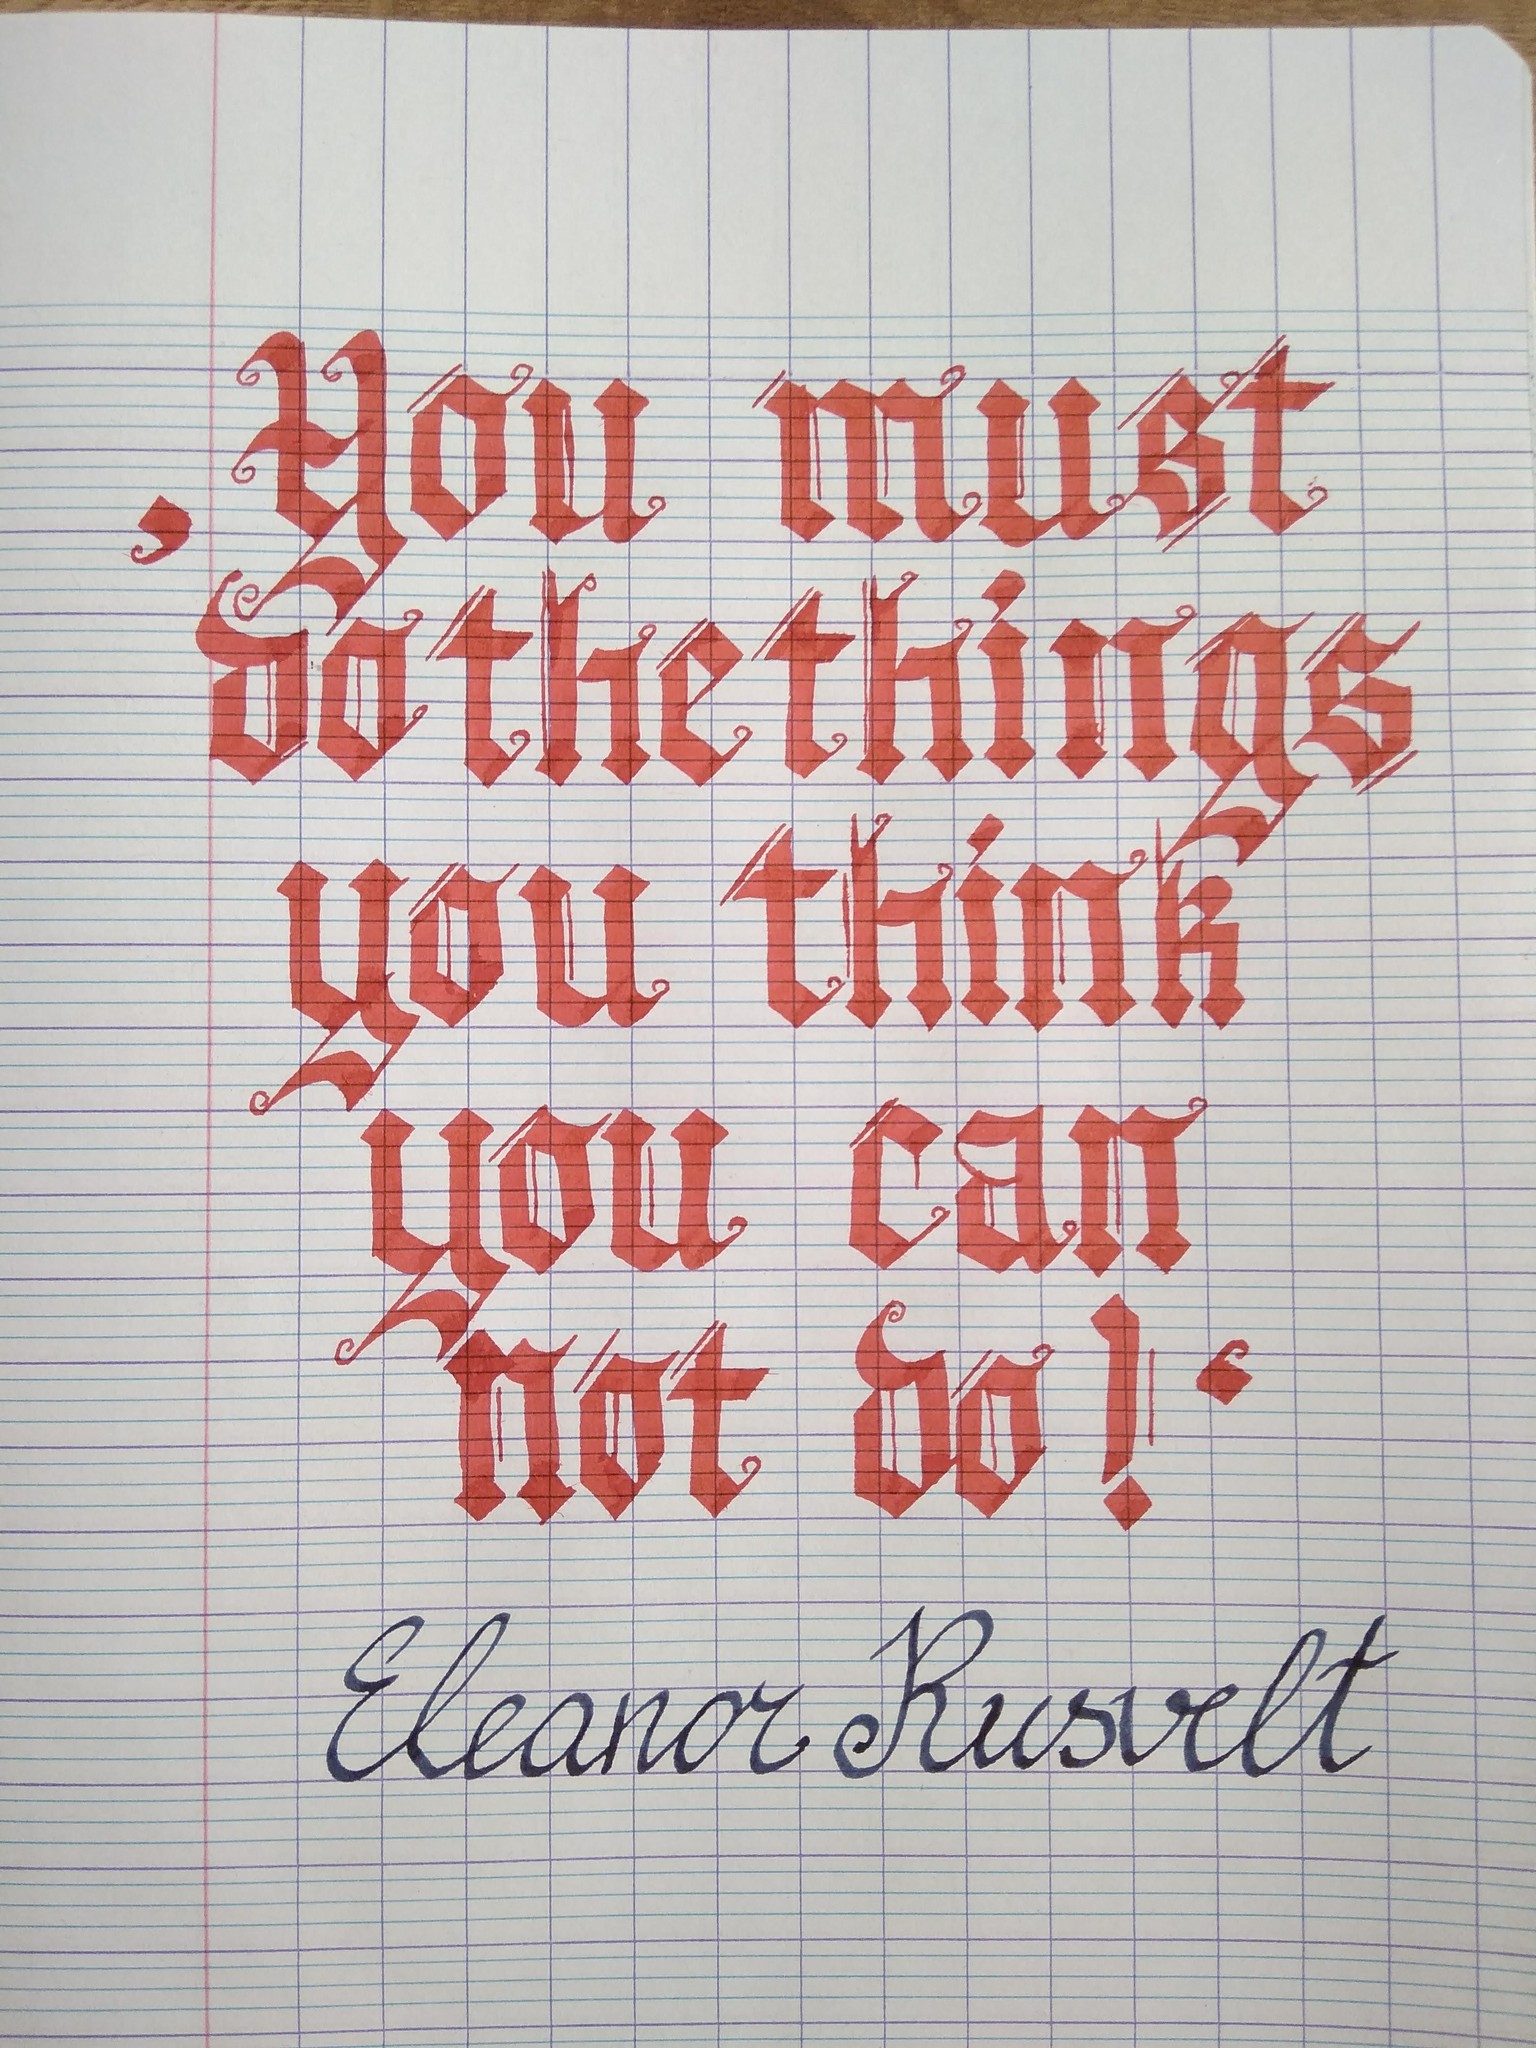 ‚You must
do the things
you think
you can
not do!‘
Eleanor Rusvelt